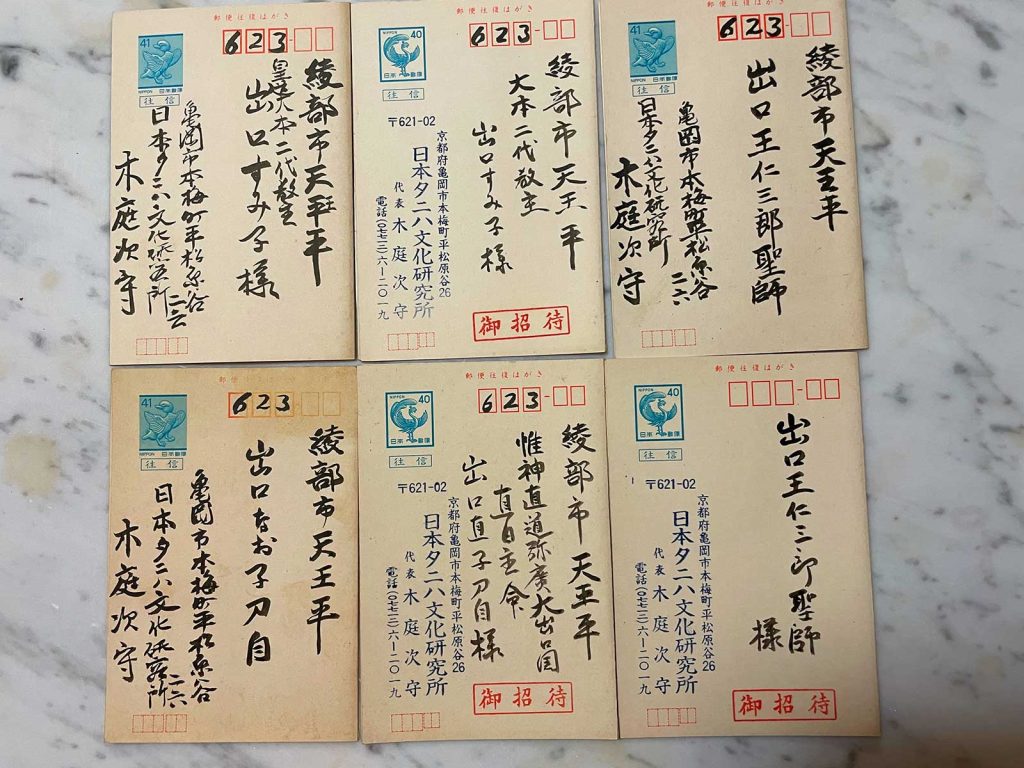 郵便往復はがき
41
NIPPON 日本郵便
往信
623
綾部市天王平
皇大本二代教主
出口すみ子様
亀岡市本梅町平松原谷二六
日本タニハ文化研究所
木庭次守
郵便往復はがき
NIPPON
40
日本郵便
往信
623
綾部市天王平
大本二代教主
出口すみ子様
〒621-02
京都府亀岡市本梅町平松原谷26
日本タニハ文化研究所
代表 木庭次守
電話(〇七七一)二六ー二〇一九
御招待
郵便往復はがき
41
NIPPON 日本郵便
往信
623
綾部市天王平
出口王仁三郎聖師
亀岡市本梅町平松原谷二六
日本タニハ文化研究所
木庭次守
郵便往復はがき
41
NIPPON 日本郵便
往信
623
綾部市天王平
出口なお子刀自
亀岡市本梅町平松原谷二六
日本タニハ文化研究所
木庭次守
郵便往復はがき
NIPPON
40
日本郵便
往信
623
綾部市天王平
惟神直道弥広大出口国
直日主命
出口直子刀自様
〒621-02
京都府亀岡市本梅町平松原谷26
日本タニハ文化研究所
代表 木庭次守
電話(〇七七一)二六ー二〇一九
御招待
郵便往復はがき
NIPPON
40
日本郵便
往信
出口王仁三郎聖師
様
〒621-02
京都府亀岡市本梅町平松原谷26
日本タニハ文化研究所
代表 木庭次守
電話(〇七七一)二六ー二〇一九
御招待